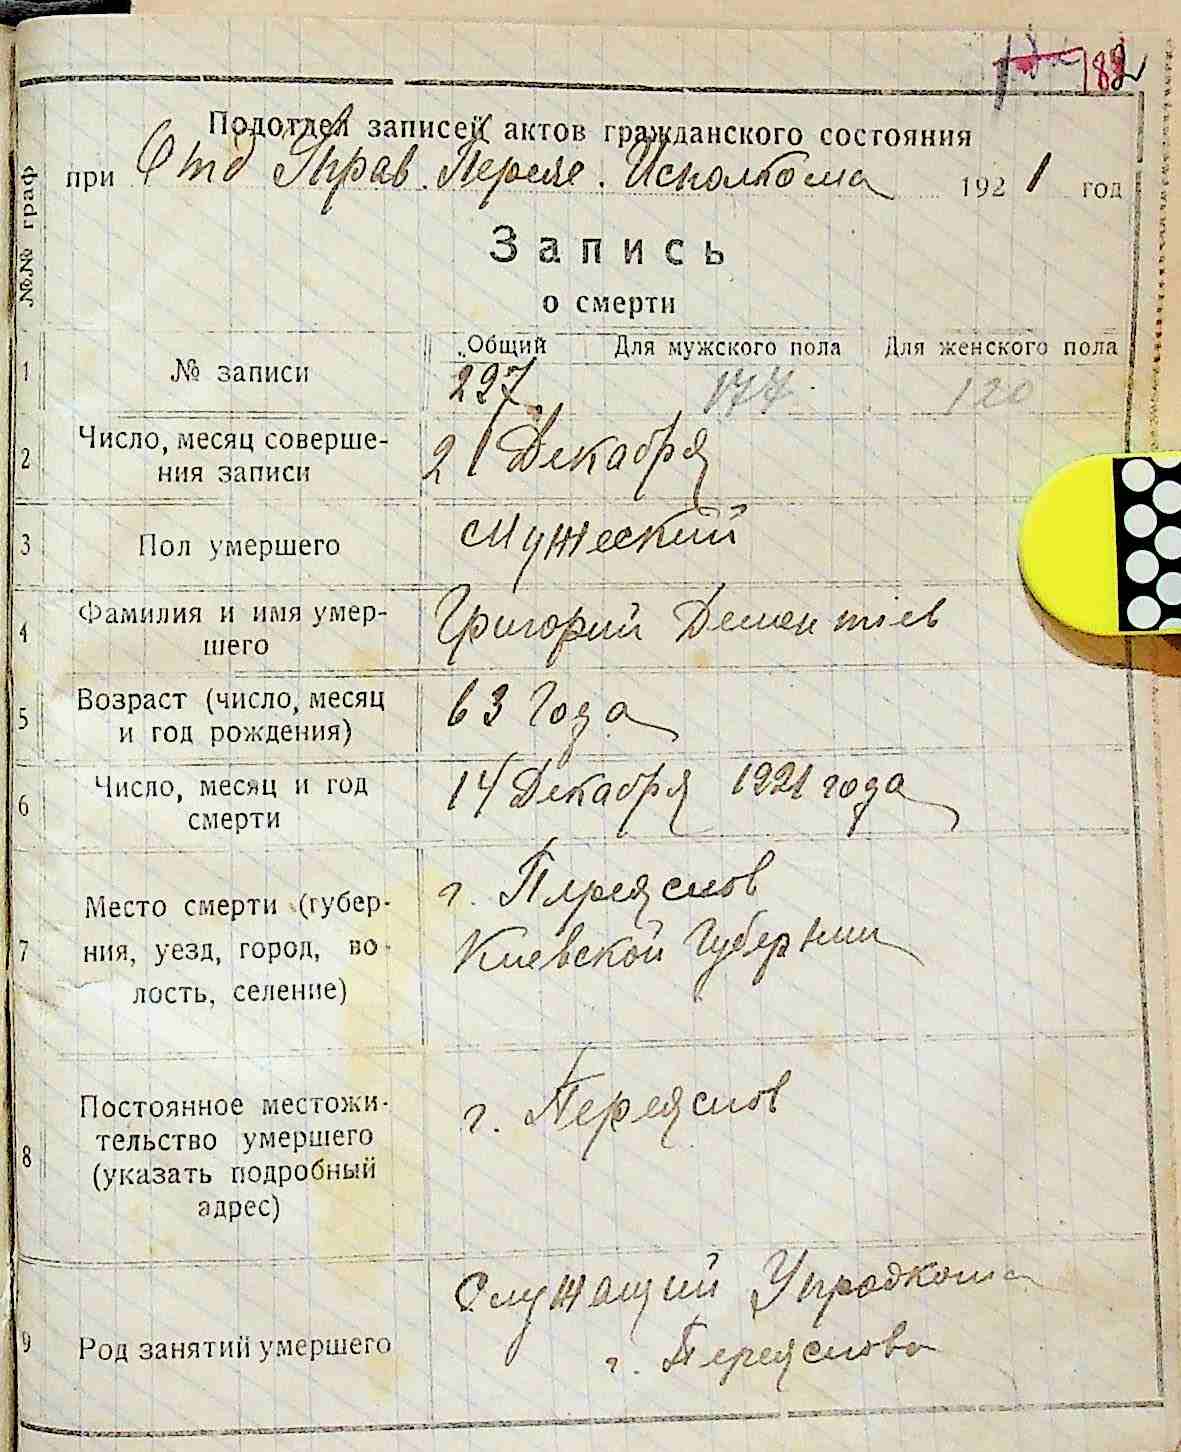 182
Подотдел записей актов гражданского состояния
при Отд Управ. Переяс. Исполкома 1921 год
№№ граф
Запись
о смерти
1 № записи Общий Для мужского пола Для женского пола
227 177 120
2 Число, месяц соверше-
ния записи 21 Декабря
3 Пол умершего Мужеский
4 Фамилия и имя умер-
шего Григорий Дементіев
5 Возраст (число, месяц
и год рождения) 63 Года
6 Число, месяц и год
смерти 14 Декабря 1921 года
7 Место смерти (губер-
ния, уезд, город, во-
лость, селение) г. Переяслов
Киевской Губернии
8 Постоянное местожи-
тельство умершего
(указать подробный
адрес) г. Переяслов
9 Род занятий умершего Служащий Упродкома
г. Переяслова